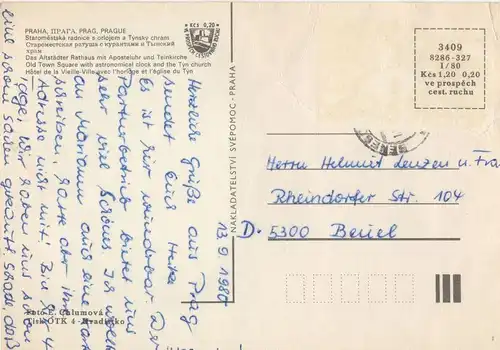 PRAHA, ПРАГА, PRAG, PRAGUE
Staroměstská radnice s orlojem a Týnský chrám
Староместская ратуша с курантами и Тынский
храм
Das Altstädter Rathaus mit Aposteluhr und Teinkirche
Old Town Square with astronomical clock and the Týn church
Hôtel de la Vieille-Ville avec l'horloge et l'église du Týn
Kčs 0,20
3409
8286-327
1/80
Kčs 1,20 0,20
ve prospěch
cest. ruchu
NAKLADATELSTVÍ SVÉPOMOC - PRAHA
13.9.1980
Herzliche Grüße aus Prag
sendet Euch Heike
Es ist hier wunderbar. Der
Partnerbetrieb bietet uns
sehr viel Schönes. Ich wollte
an Mariann auch eine Karte
schreiben, hatte aber ihre
Adresse nicht mit. Bin 3-4
Tage. Wir haben uns schon
eine schöne Sachen gekauft. Schade, daß
Herrn Helmut Lenzen u. Frau
Rheindorfer Str. 104
D. 5300 Beuel
Foto E. Chlumová
Tisk OTK 4 - Hradišťko